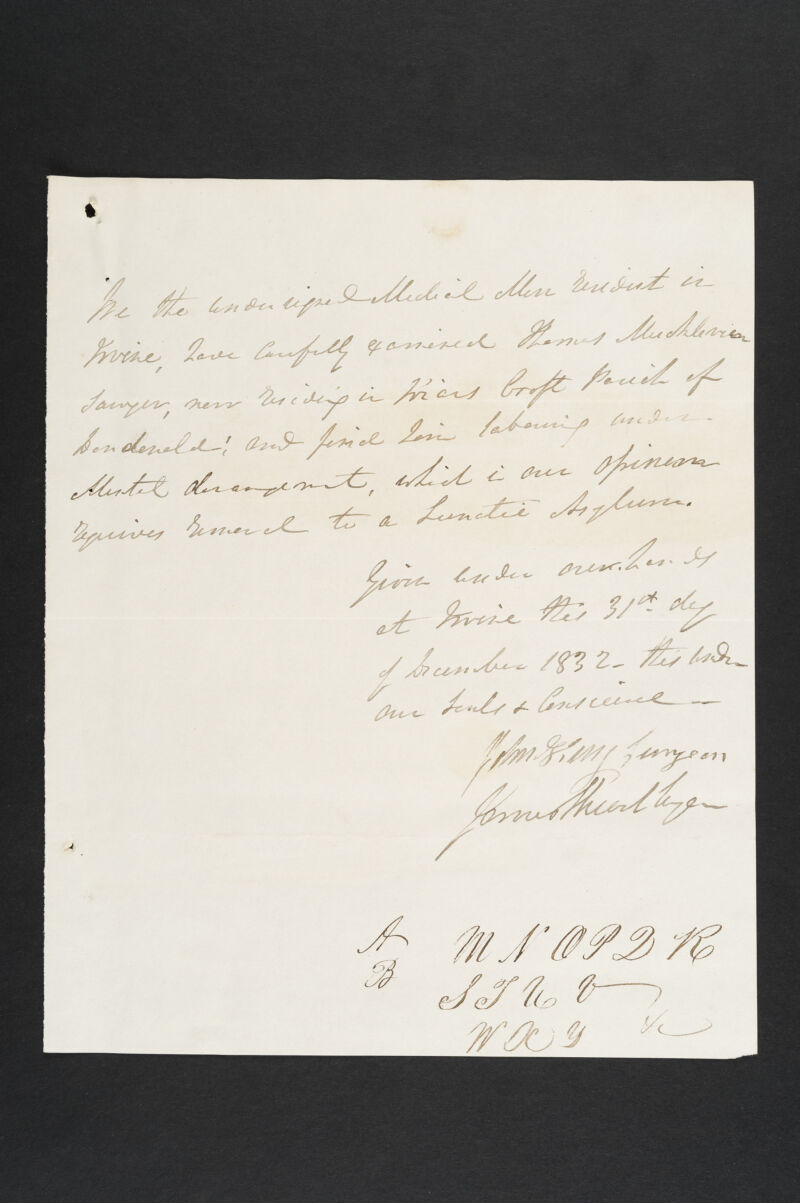 We the undersigned Medical Men Resident in
Irvine, have Carefully examined Thomas Mucklewain
Sawyer, now Residing in Friars Croft Parish of
Dundonald; and find him labouring under
Mental derangement, which in our opinion
Requires Removal to a Lunatic Asylum.
Given under our hands
at Irvine this 31st day
of December 1832 - this under
our Souls & Conscience -
John Surgeon
James Surgeon
A M N O P D R
B S T U V
W X Y &c